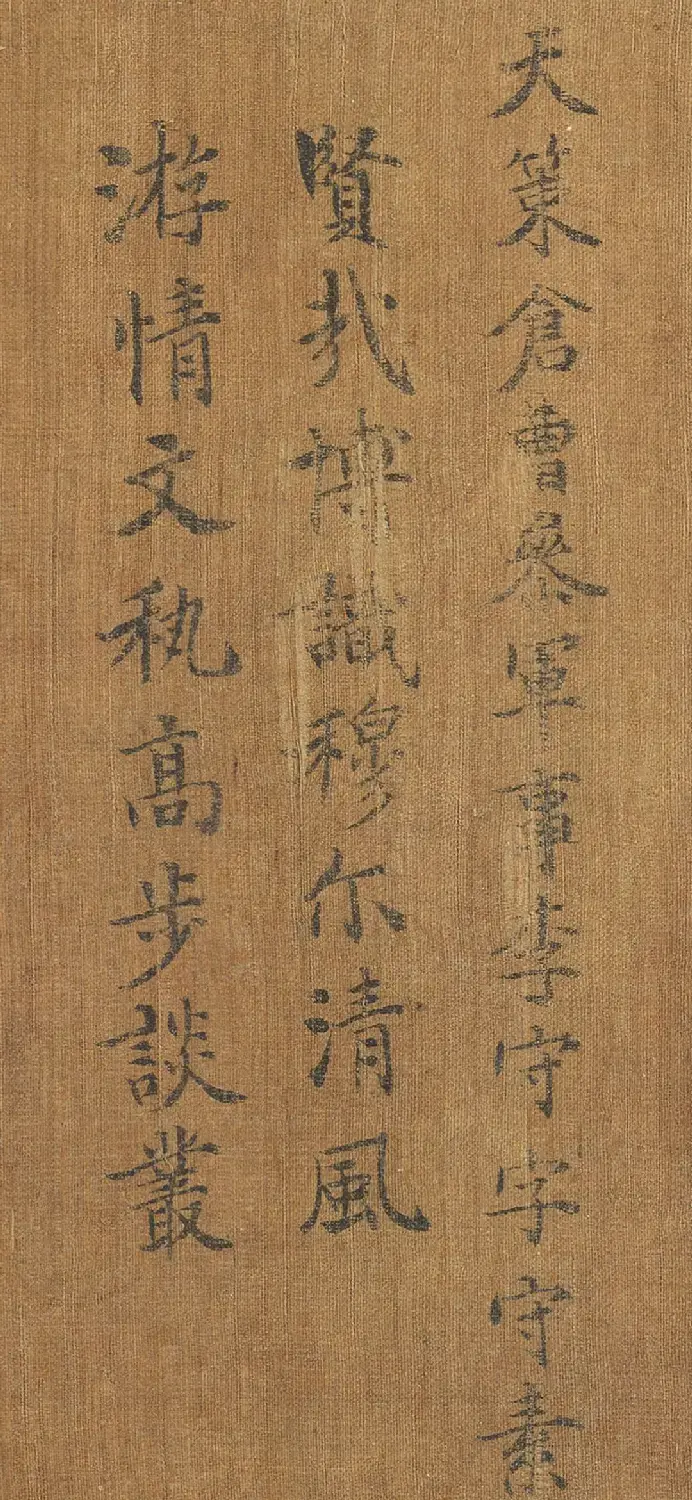 天策倉曹叅軍事李守字守素
賢哉博識穆尔清風
游情文秇高步談叢